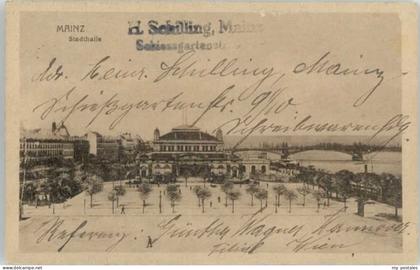 MAINZ
Stadthalle
H. Schilling, Mainz
Schiessgartenstr.
Adr. Heinr. Schilling, Mainz
Schießgartenstr. 9/10
Schreibwarenhdlg
Referenz: Günther Wagner, Hannover
Wien